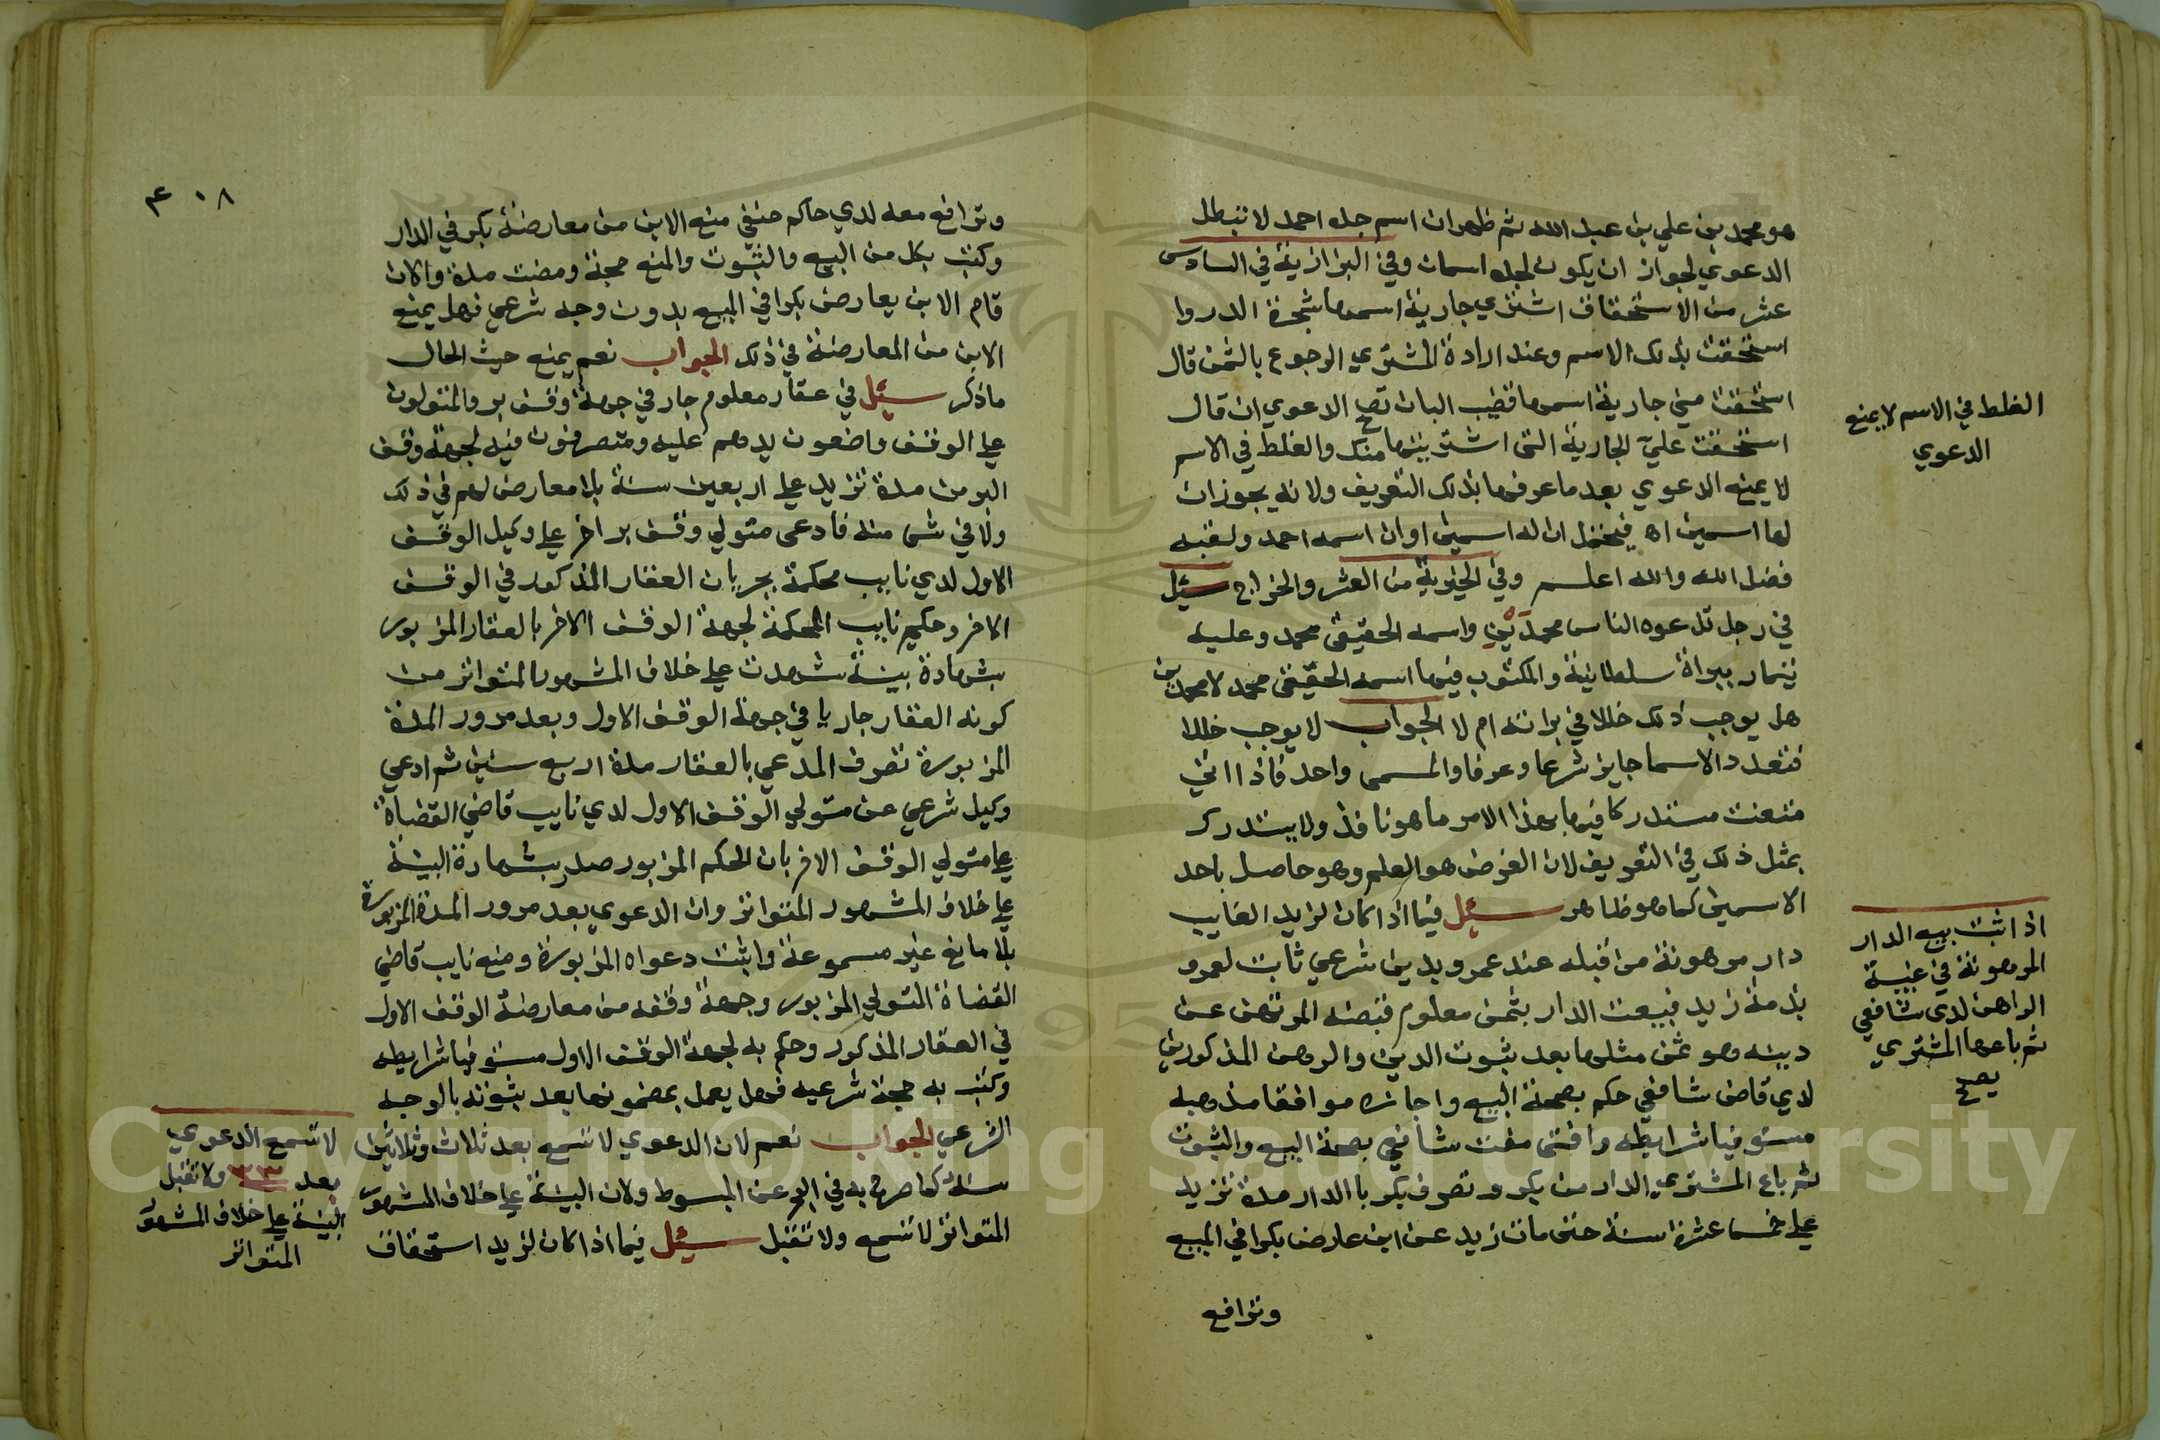 هو محمد بن علي بن عبد الله ثم ظهر ان اسم جده احمد لا تبطل
الدعوي لجواز ان يكون لجده اسمان وفي البزازية في السادس
عشر من الاستحقاق اشتري جارية اسمها شجرة الدر وا
استحقت بذلك الاسم وعند ارادة المشتري الرجوع بالثمن قال
استحقت مني جارية اسمها قضيب البان تصح الدعوي ان قال
استحقت علي الجارية التى اشتريتها منك والغلط في الاسم
لا يمنع الدعوي بعد ما عرفها بذلك التعريف ولانه يجوز ان
لها اسمين اه فيحتمل ان له اسمين او ان اسمه احمد ولقبه
فضل الله والله اعلم وفي الخيرية من العشر والخراج سئيل
في رجل تدعوه الناس محمدين واسمه الحقيقي محمد وعليه
تيمار ببراة سلطانية والمكتوب فيها اسمه الحقيقي محمد لا محمدين
هل يوجب ذلك خللا في براته ام لا الجواب لا يوجب خللا
فتعدد الاسما جايز شرعا وعرفا والمسمى واحد فاذا اتي
متعنت مستدركا فيها بهذا الامر ما هو نافذ ولا يستدرك
بمثل ذلك في التعريف لان الغرض هو العلم وهو حاصل باحد
الاسمين كما هو ظاهر سئيل فيما اذا كان لزيد الغايب
دار مرهونة من قبله عند عمرو بدين شرعي ثابت لعمرو
بذمة زيد فبيعت الدار بثمن معلوم قبضه المرتهن عن
دينه وهو ثمن مثلها بعد ثبوت الدين والرهن المذكورين
لدي قاض شافعي حكم بصحة البيع واجازه موافقا مذهبه
مستوفيا شرايطه وافتى مفت شافعي بصحة البيع والثبوت
ثم باع المشتري الدار من بكر وتصرف بكر باالدار مدة تزيد
علي خمسا عشرة سنة حتى مات زيد عن ابن عارض بكرا في المبيع
وترافع
الغلط في الاسم لا يمنع
الدعوي
اذا ثبت بيع الدار
المرهونة في غيبة
الراهن لدى شافعي
ثم باعها المشتري
يصح
٤٠٨
وترافع معه لدي حاكم حنفي منع الابن من معارضة بكر في الدار
وكتب بكل من البيع والثبوت والمنع حجة ومضت مدة والان
قام الابن يعارض بكرا في المبيع بدون وجه شرعي فهل يمنع
الابن من المعارضة في ذلك الجواب نعم يمنع حيث الحال
ما ذكر سئيل في عقار معلوم جار في جهة وقف بر والمتولون
علي الوقف واضعون يدهم عليه ومتصرفون فيه لجهة وقف
البر من مدة تزيد علي اربعين سنة بلا معارض لهم في ذلك
ولا في شى منه فادعى متولي وقف بر اخر علي وكيل الوقف
الاول لدي نايب محكمة بجريان العقار المذكور في الوقف
الاخر وحكم نايب المحكمة لجهة الوقف الاخر بالعقار المزبور
بشهادة بينة شهدت علي خلاف المشهور المتواتر من
كونه العقار جاريا في جهة الوقف الاول وبعد مرور المدة
المزبورة تصرف المدعي بالعقار مدة اربع سنين ثم ادعي
وكيل شرعي عن متولي الوقف الاول لدي نايب قاضي القضاة
علي متولي الوقف الاخر بان الحكم المزبور صدر بشهادة البينة
علي خلاف المشهور المتواتر وان الدعوي بعد مرور المدة المزبورة
بلا مانع غير مسموعة واثبت دعواه المزبورة ومنع نايب قاضي
القضاة المتولي المزبور وجهة وقفه من معارضة الوقف الاول
في العقار المذكور وحكم به لجهة الوقف الاول مستوفيا شرايطه
وكتب به حجة شرعيه فهل يعمل بمضمونها بعد ثبوته بالوجه
الشرعي الجواب نعم لان الدعوي لا تسمع بعد ثلاث وثلاثين
سنة كما صرح به في البحر عن المبسوط ولان البينة علي خلاف المشهور
المتواتر لا تسمع ولا تقبل سئيل فيما اذا كان لزيد استحقاق
لا تسمع الدعوي
بعد ٣٣ ولا تقبل
البينة علي خلاف المشهور
المتواتر
Copyright © King Saud University